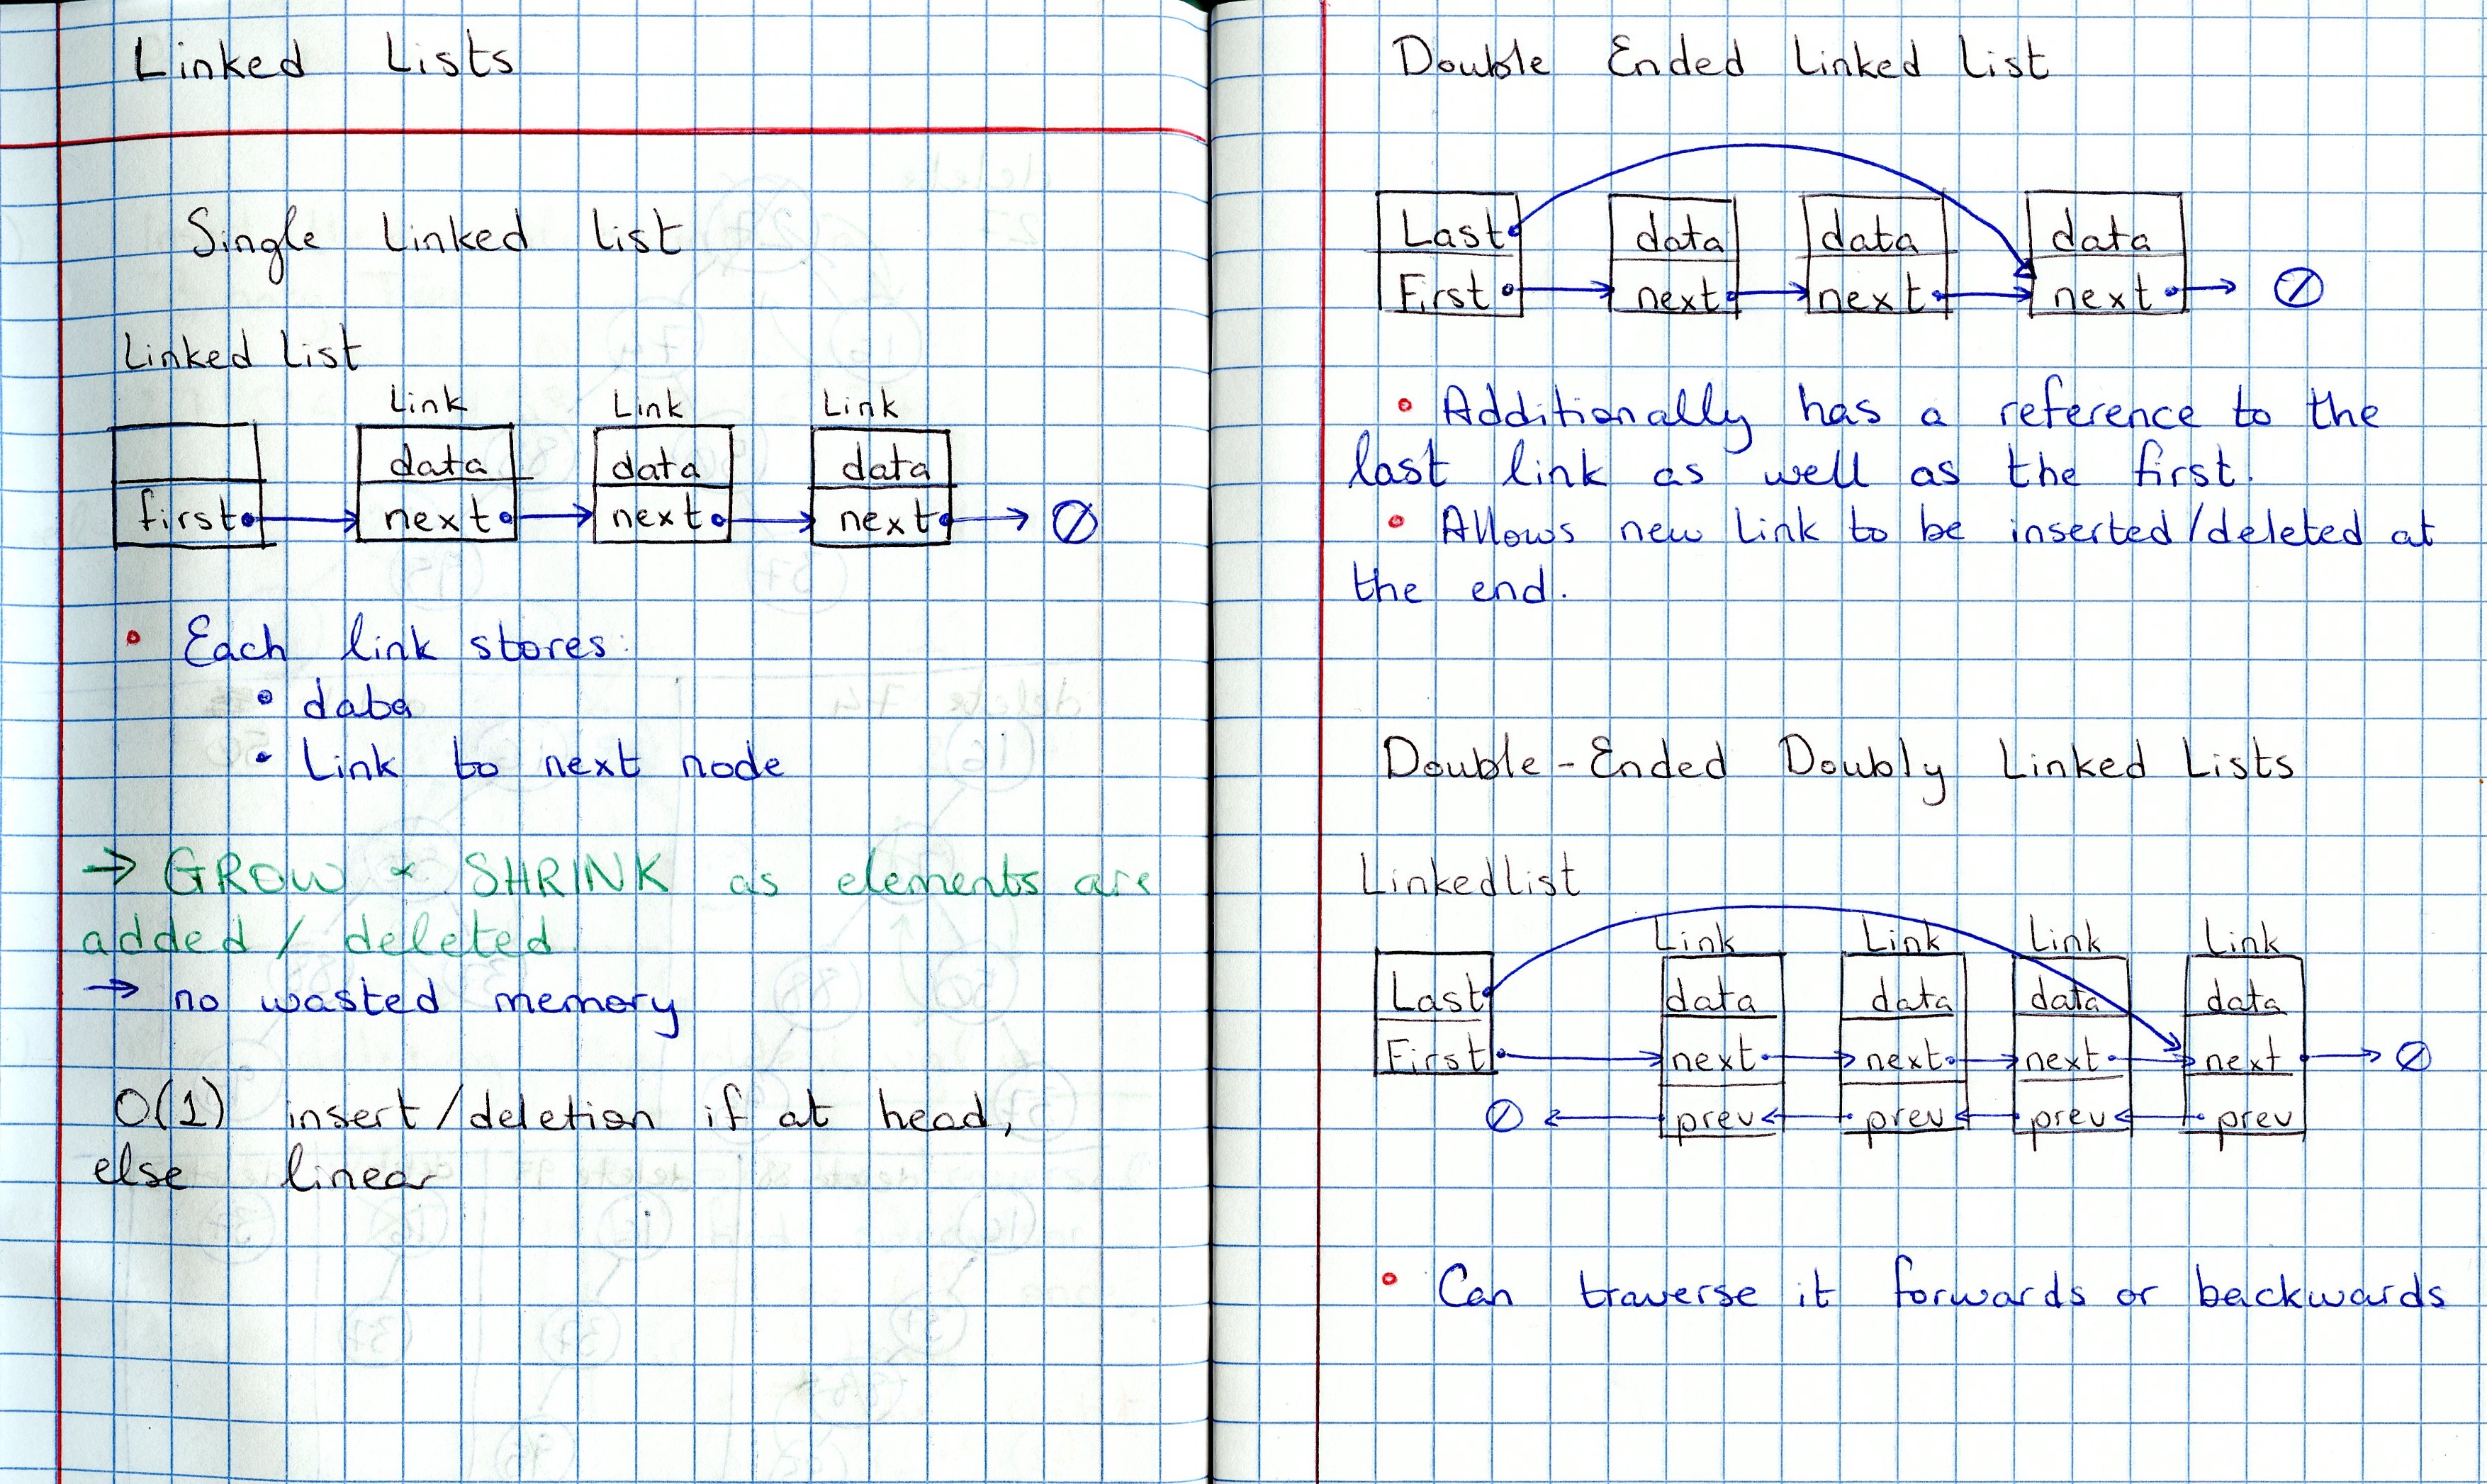 Linked Lists
Single Linked List
Linked List
Link Link Link
data data data
first next next next ∅
• Each link stores:
• data
• Link to next node
→ GROW & SHRINK as elements are
added / deleted.
→ no wasted memory
O(1) insert/deletion if at head,
else linear
Double Ended Linked List
Last data data data
First next next next ∅
• Additionally has a reference to the
last link as well as the first.
• Allows new link to be inserted/deleted at
the end.
Double-Ended Doubly Linked Lists
LinkedList
Link Link Link Link
Last data data data data
First next next next next ∅
∅ prev prev prev prev
• Can traverse it forwards or backwards